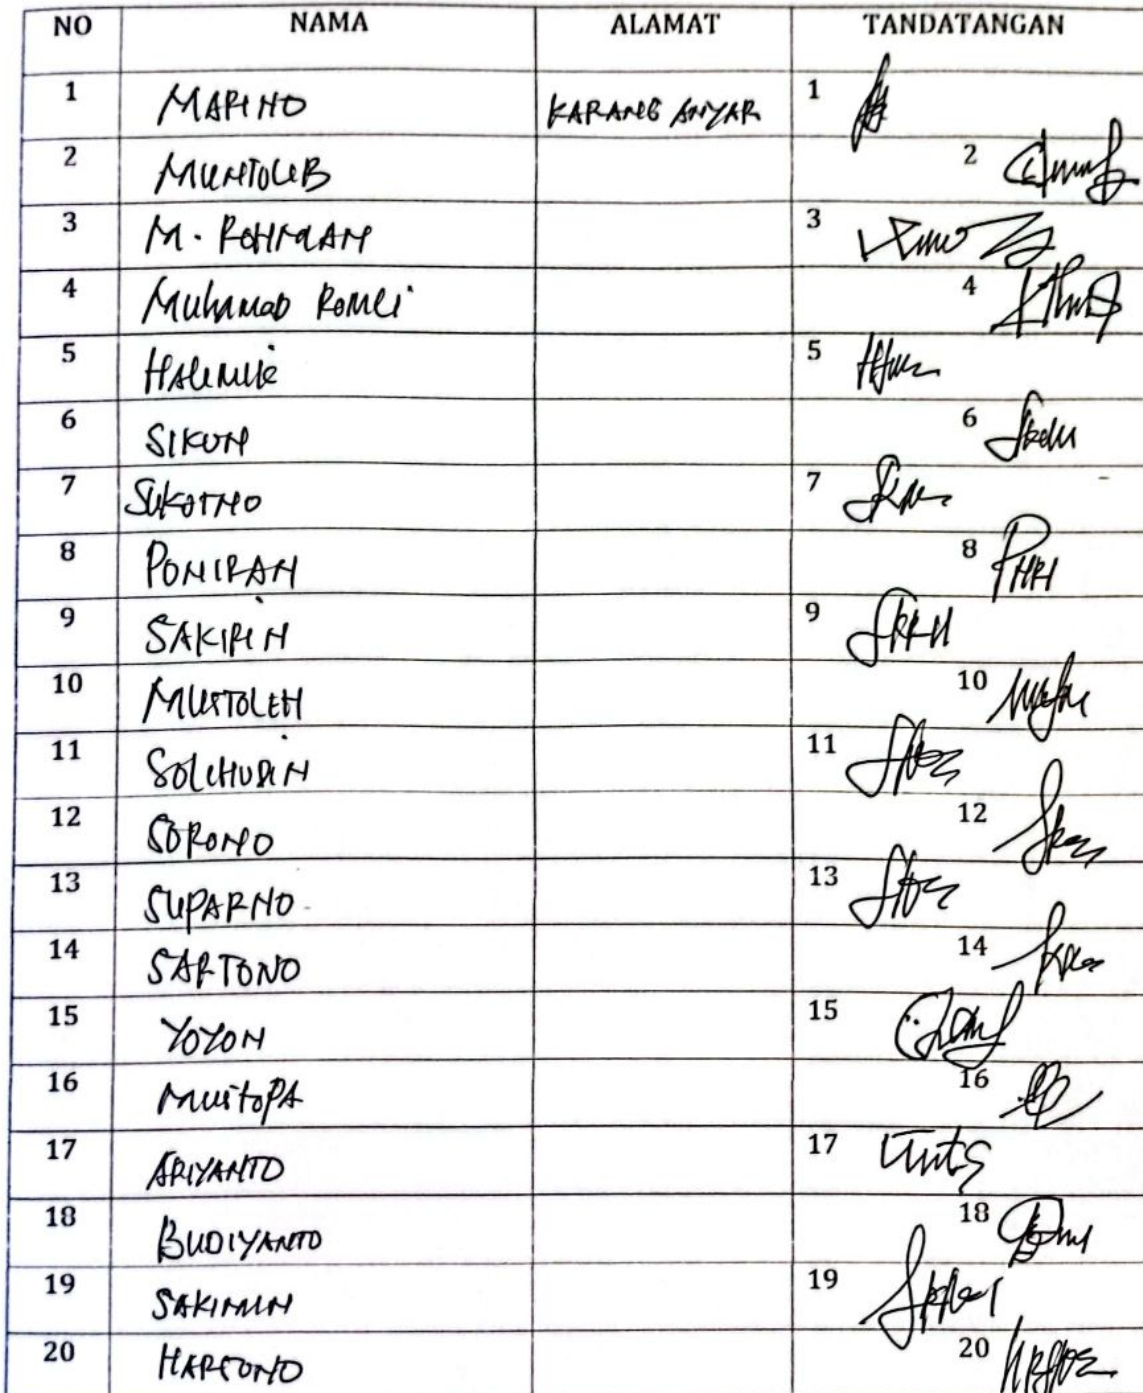 NO NAMA ALAMAT TANDATANGAN
1 MARINO KARANG ANYAR 1
2 MUNTOLIB 2
3 M. ROHMAN 3
4 Muhamad Romli 4
5 HALIMIE 5
6 SIKUN 6
7 SUKOTNO 7
8 PONIRAN 8
9 SAKIRIN 9
10 MUSTOLEH 10
11 SOLCHUDIN 11
12 SORONO 12
13 SUPARNO 13
14 SARTONO 14
15 YOYON 15
16 MUSTOPA 16
17 ARIYANTO 17
18 BUDIYANTO 18
19 SAKIMIN 19
20 HARTONO 20